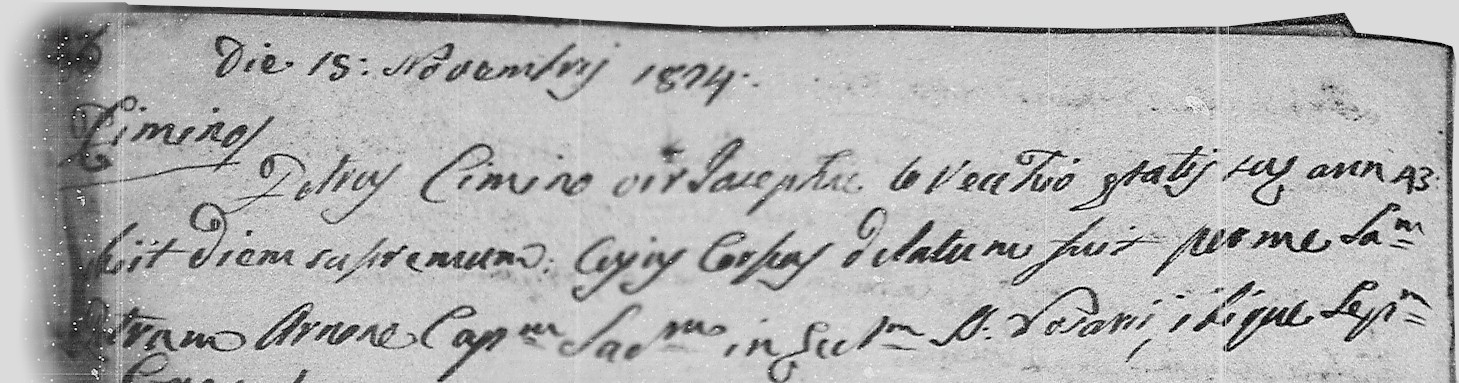 Die 15: Novembrij 1824.
Cimino
Petrus Cimino vir Josephæ lo Vecchio ętatis suę ann 43.
obiit diem supremum. Cujus Corpus delatum fuit per me Sa.m
Petrum Arnone Cap.m Sac.m in Eccl.m S. Rosarii, ibique Sep.m